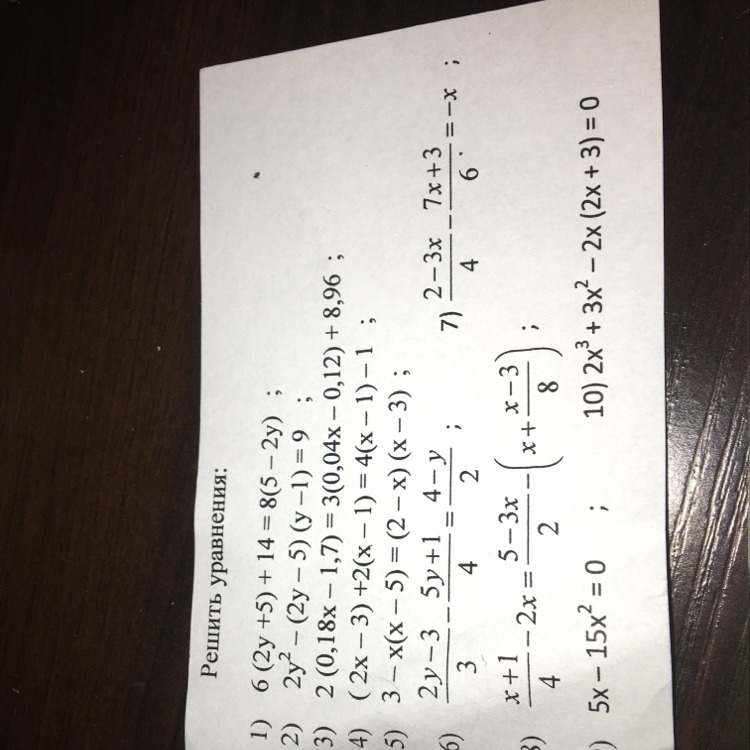 Решить уравнения:
1) 6 (2y +5) + 14 = 8(5 – 2y) ;
2) 2y² – (2y – 5) (y –1) = 9 ;
3) 2 (0,18x – 1,7) = 3(0,04x – 0,12) + 8,96 ;
4) ( 2x – 3) +2(x – 1) = 4(x – 1) – 1 ;
5) 3 – x(x – 5) = (2 – x) (x – 3) ;
6) (2y – 3)/3 – (5y + 1)/4 = (4 – y)/2 ; 7) (2 – 3x)/4 – (7x + 3)/6 = –x ;
8) (x + 1)/4 – 2x = (5 – 3x)/2 – (x + (x – 3)/8) ;
) 5x – 15x² = 0 ; 10) 2x³ + 3x² – 2x (2x + 3) = 0